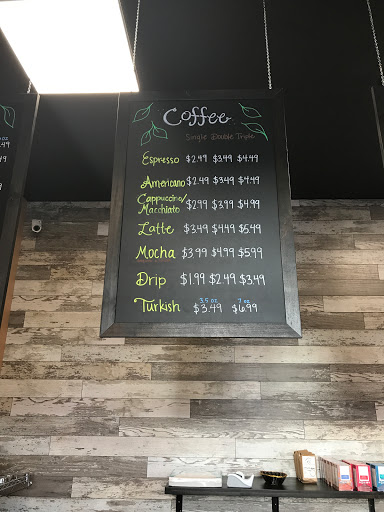 Coffee
Single Double Triple
Espresso $2.49 $3.49 $4.49
Americano $2.49 $3.49 $4.49
Cappuccino/
Macchiato $2.99 $3.99 $4.99
Latte $3.49 $4.49 $5.49
Mocha $3.99 $4.99 $5.99
Drip $1.99 $2.49 $3.49
3.5 oz 7 oz
Turkish $3.49 $6.99